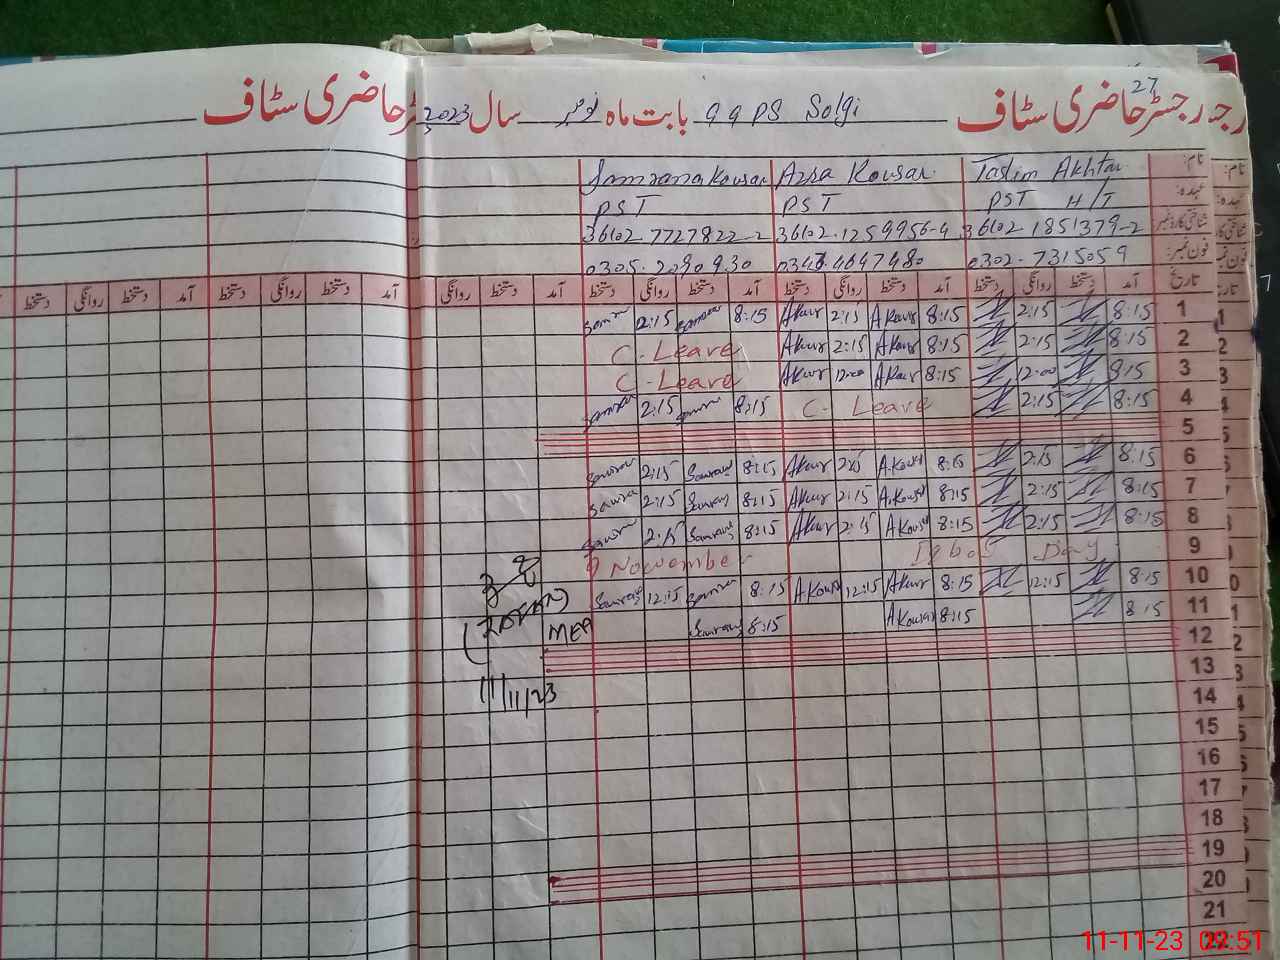 رجسٹر حاضری سٹاف 27 GGPS Solgi بابت ماہ نومبر سال 2023
حاضری سٹاف
نام: Taslim Akhtar Azra Kousar Samrana Kousar
عہدہ: PST H/T PST PST
شناختی کارڈ نمبر 36102-1851379-2 36102-1259956-4 36102-7727822-2
فون نمبر: 0302-7315059 0305-2090930
تاریخ آمد دستخط روانگی دستخط آمد دستخط روانگی دستخط آمد دستخط روانگی دستخط آمد دستخط روانگی
آمد دستخط روانگی دستخط آمد دستخط روانگی دستخط
1 8:15 2:15 8:15 AKour 2:15 AKour 8:15 2:15
2 8:15 2:15 8:15 AKour 2:15 AKour C-Leave
3 8:15 12:00 8:15 AKour 12:00 AKour C-Leave
4 8:15 2:15 C-Leave 8:15 2:15
5
6 8:15 2:15 8:15 A.Kour 2:15 AKour 8:15 2:15
7 8:15 2:15 8:15 A.Kour 2:15 AKour 8:15 2:15
8 8:15 2:15 8:15 AKour 2:15 AKour 8:15 2:15
9 9 November Iqbal Day
10 8:15 12:15 8:15 AKour 12:15 AKour 8:15 12:15
11 8:15 8:15 AKousar 8:15
MEA
12
13
11/11/23
14
15
16
17
18
19
20
21
11-11-23 09:51